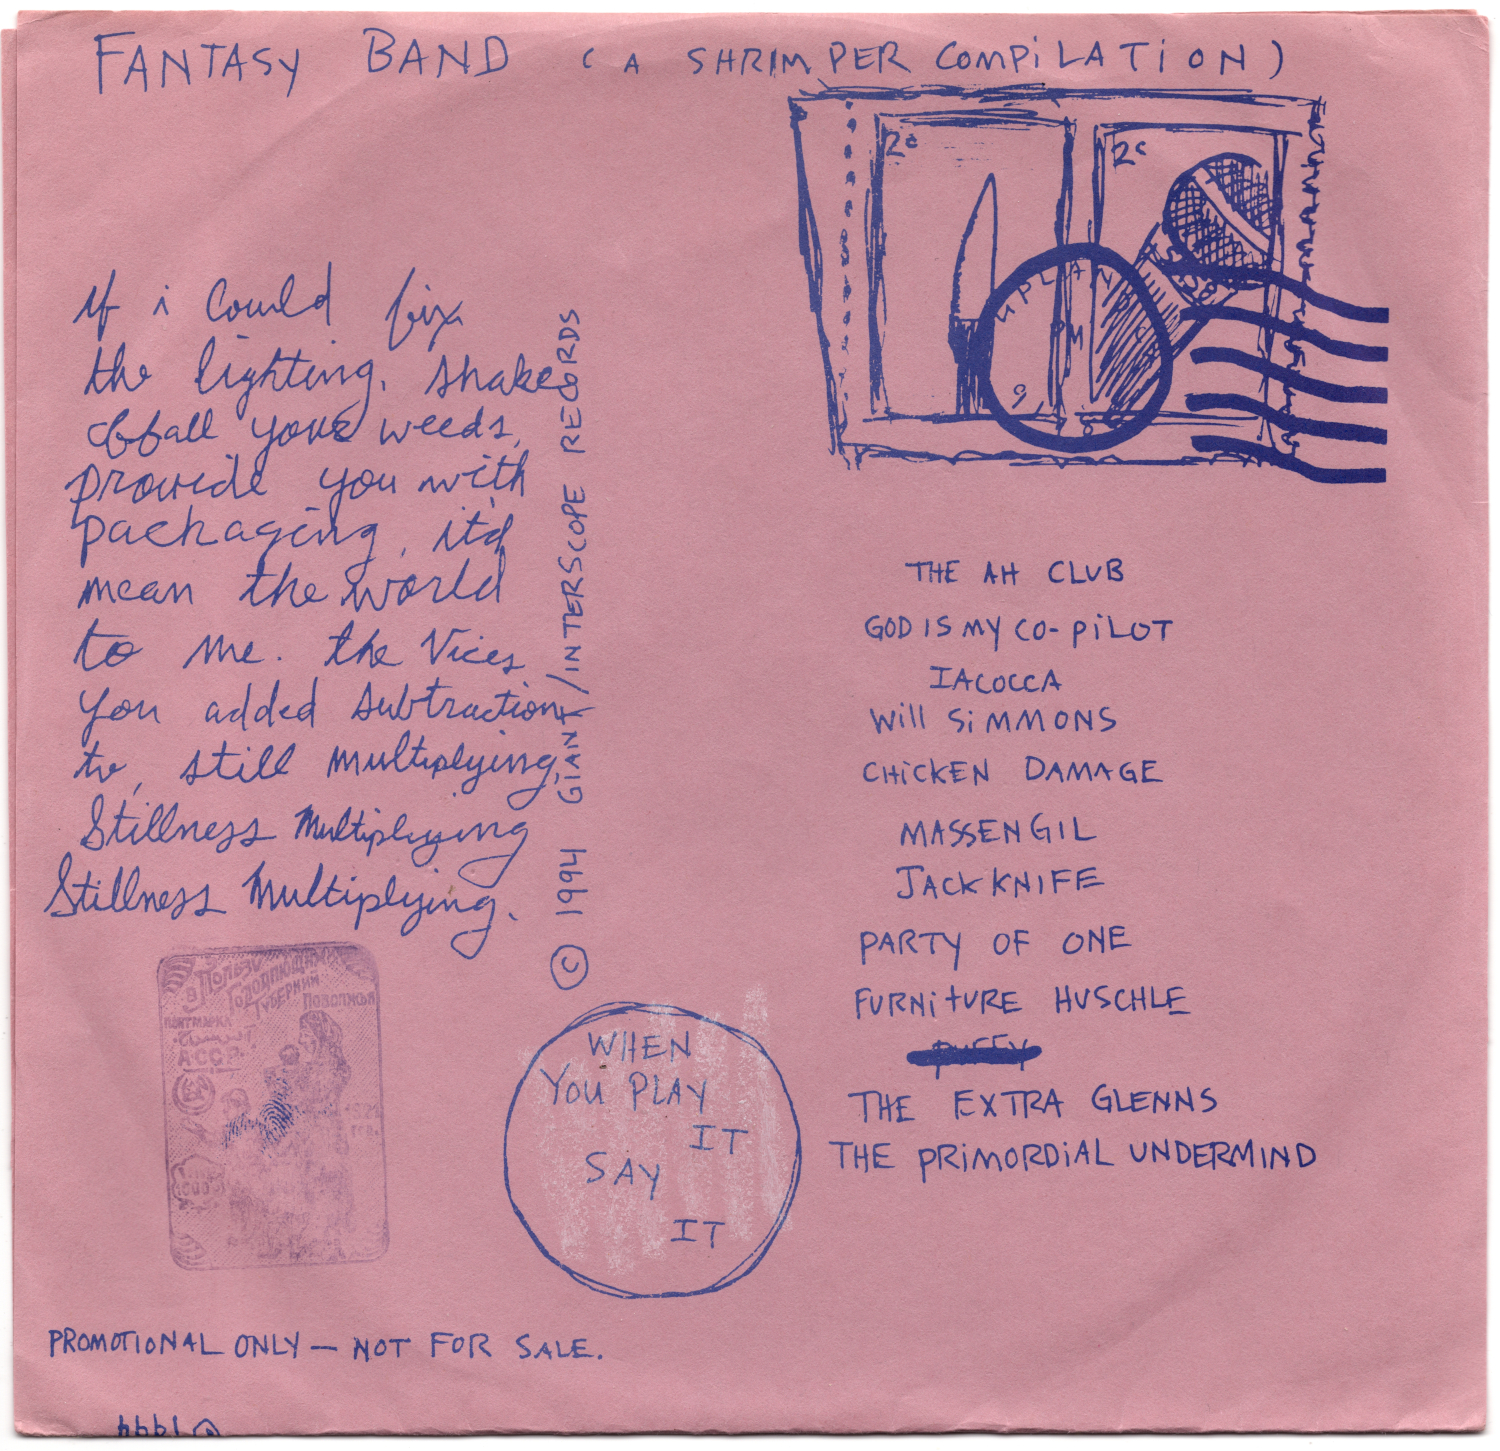 FANTASY BAND (A SHRIMPER COMPiLATiON)
2c
2c
UPLAND CA
PM
9
If i could fix
the lighting, shake
off all your weeds,
provide you with
packaging, it'd
mean the world
to me. the Vices
you added subtraction
to, still multiplying,
Stillness Multiplying
Stillness Multiplying.
© 1994 GIANT/INTERSCOPE RECORDS
THE AH CLUB
GOD IS MY CO-PiLOT
IACOCCA
Will SiMMONS
CHiCKEN DAMAGE
MASSENGIL
JACKKNIFE
PARTY OF ONE
FURNiTURE HUSCHLE
PUFFY
THE EXTRA GLENNS
THE PRiMORDiAL UNDERMIND
В Пользу
Голодающих
Губерний
Поволжья
ПОЧТМАРКА
WHEN
YOU PLAY
IT
SAY
IT
PROMOTIONAL ONLY — NOT FOR SALE.
© 1994